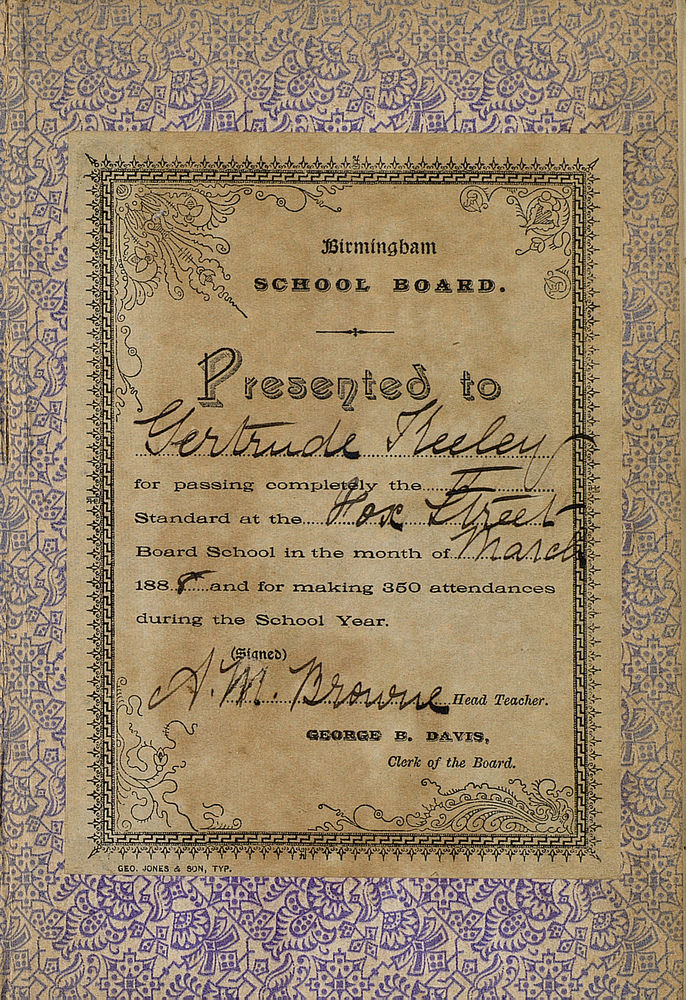 Birmingham
SCHOOL BOARD.
Presented to
Gertrude Keeley
for passing completely the II
Standard at the Fox Street
Board School in the month of March
188 and for making 350 attendances
during the School Year.
(Signed)
A. M. Browne Head Teacher.
GEORGE B. DAVIS,
Clerk of the Board.
GEO. JONES & SON, TYP.